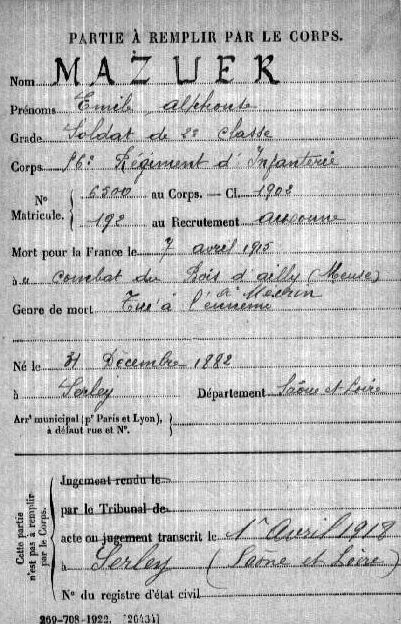 PARTIE À REMPLIR PAR LE CORPS.
Nom MAZUER
Prénoms Emile alphonse
Grade Soldat de 2e classe
Corps 16e Régiment d'Infanterie
N° Matricule. { 6500 au Corps. — Cl. 1902
192 au Recrutement auxonne
Mort pour la France le 7 avril 1915
à u combat du Bois d'ailly (Meuse)
Genre de mort Tué à l'ennemi
Né le 31 Décembre 1882
à Serley Département Saône et Loire
Arrt municipal (pr Paris et Lyon), à défaut rue et N°. }
Cette partie n'est pas à remplir par le Corps.
Jugement rendu le
par le Tribunal de
acte ou jugement transcrit le 1er Avril 1918
à Serley (Saône et Loire)
N° du registre d'état civil
269-708-1922. [26434]